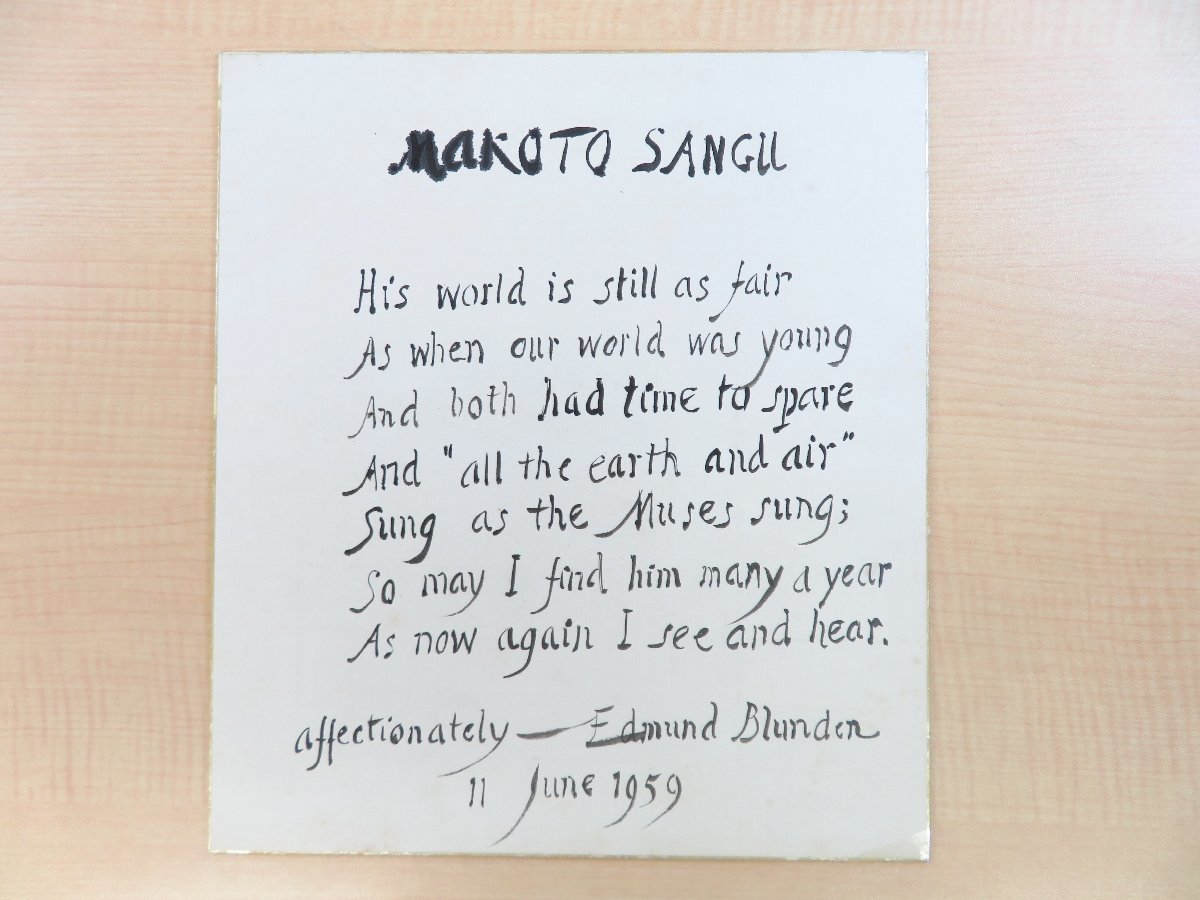 MAKOTO SANGU
His world is still as fair
As when our world was young
And both had time to spare
And "all the earth and air"
Sung as the Muses sung;
So may I find him many a year
As now again I see and hear.
affectionately — Edmund Blunden
11 June 1959